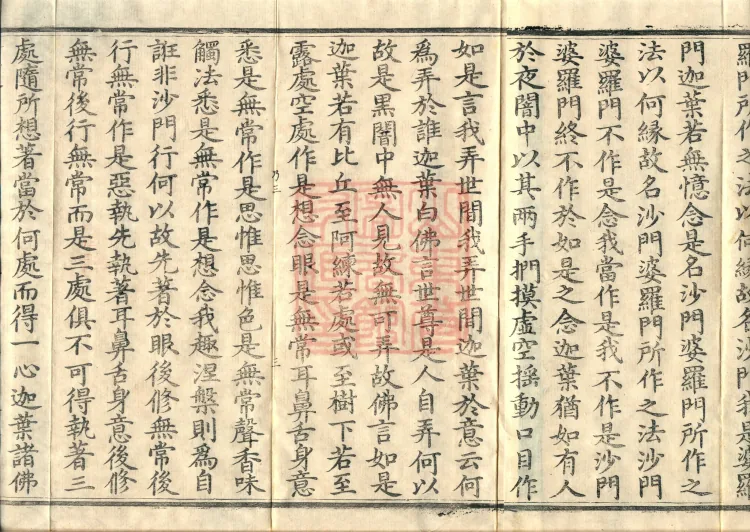 羅門所作之法以何緣故名沙門婆羅
門迦葉若無憶念是名沙門婆羅門所作之
法以何縁故名沙門婆羅門所作之法沙門
婆羅門不作是念我當作是我不作是沙門
婆羅門終不作於如是之念迦葉猶如有人
於夜闇中以其兩手捫摸虛空揺動口目作
如是言我弄世間我弄世間迦葉於意云何
爲弄於誰迦葉白佛言世尊是人自弄何以
故是黑闇中無人見故無可弄故佛言如是
迦葉若有比丘至阿練若處或至樹下若至
露處空處作是想念眼是無常耳鼻舌身意
乃三 三
悉是無常作是思惟思惟色是無常聲香味
觸法悉是無常作是想念我趣涅槃則爲自
誑非沙門行何以故先著於眼後修無常後
行無常作是惡執先執著耳鼻舌身意後修
無常後行無常而是三處俱不可得執著三
處隨所想著當於何處而得一心迦葉諸佛